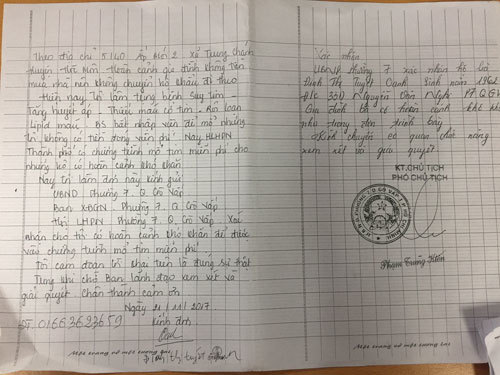 Theo địa chỉ 5140 Ấp Mới 2. Xã Trung Chánh
Huyện Hóc Môn. Hoàn cảnh gia đình không tiền
mua nhà nên không chuyển hộ khẩu đi theo.
Hiện nay tôi lâm bệnh Suy tim -
Tăng huyết áp. Thiếu máu cơ tim. Rối loạn
Lipid máu. BS bắt nhập viện để mổ nhưng
tôi không có tiền đóng viện phí. Nay HLHPN
Thành phố có chương trình mổ tim miễn phí cho
những hộ có hoàn cảnh khó khăn.
Nay tôi làm đơn này kính gửi:
UBND Phường 7. Q Gò Vấp
Ban XĐGN. Phường 7. Q Gò Vấp.
Hội LHPN Phường 7. Q. Gò Vấp. Xác
nhận cho tôi có hoàn cảnh khó khăn để được
vào chương trình mổ tim miễn phí.
Tôi cam đoan lời khai trên là đúng sự thật
Trong khi chờ Ban lãnh đạo xem xét và
giải quyết. Chân thành cảm ơn
Ngày 21/11/2017
ĐT: 01663623659 Kính đơn
Đinh thị tuyết
Một trang vở một tương lai
Xác nhận
UBND Phường 7 xác nhận hộ bà
Đinh Thị Tuyết Canh Sinh năm 1962
Đ/c 330 Nguyễn Văn Nghi P7. Q.GV
Gia đình bà có hoàn cảnh khó khăn
như trong đơn trình bày
Kính chuyển cơ quan chức năng
xem xét và giải quyết.
KT.CHỦ TỊCH
PHÓ CHỦ TỊCH
Phạm Trung Kiên
Một trang vở một tương lai